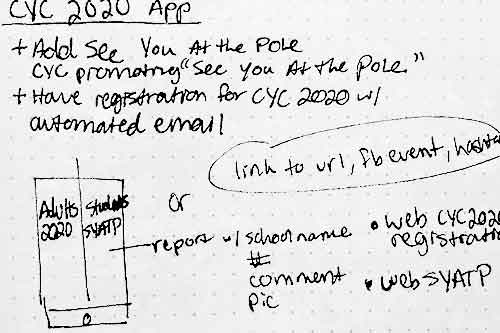 CYC 2020 App
+ Add See You At the Pole
CYC promoting "See you At the Pole."
+ Have registration for CYC 2020 w/
automated email
link to url, fb event, hashta
Adults
2020
Students
SYATP
or
report w/ school name
#
comment
pic
• web CYC 2020
registratio
• web SYATP